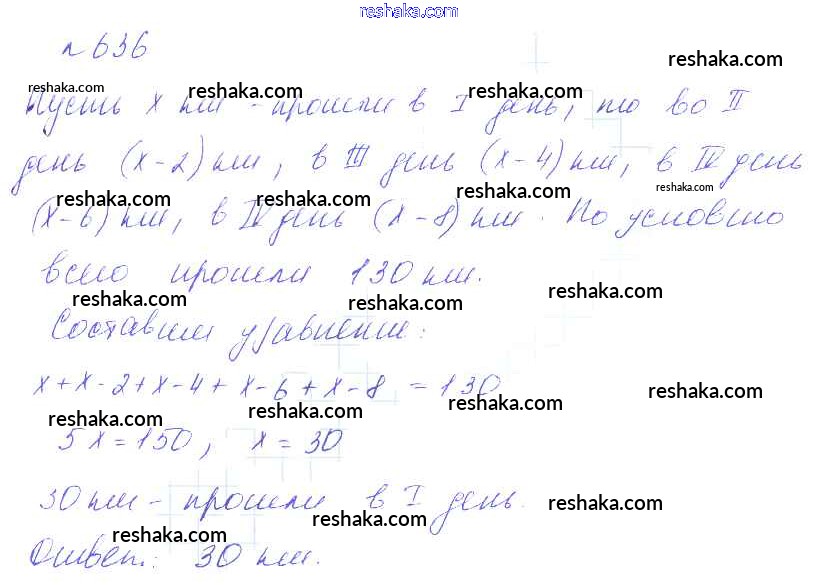 reshaka.com
№ 636
reshaka.com
reshaka.com reshaka.com reshaka.com
Пусть x км - прошли в I день, то во II
день (x-2) км, в III день (x-4) км, в IV день
reshaka.com reshaka.com reshaka.com reshaka.com
(x-6) км, в IV день (x-8) км. По условию
всего прошли 130 км.
reshaka.com reshaka.com reshaka.com
Составим уравнение:
x+x-2+x-4+x-6+x-8 = 130
reshaka.com reshaka.com reshaka.com reshaka.com
5x=150, x=30
30 км - прошли в I день.
reshaka.com reshaka.com reshaka.com
Ответ: 30 км.